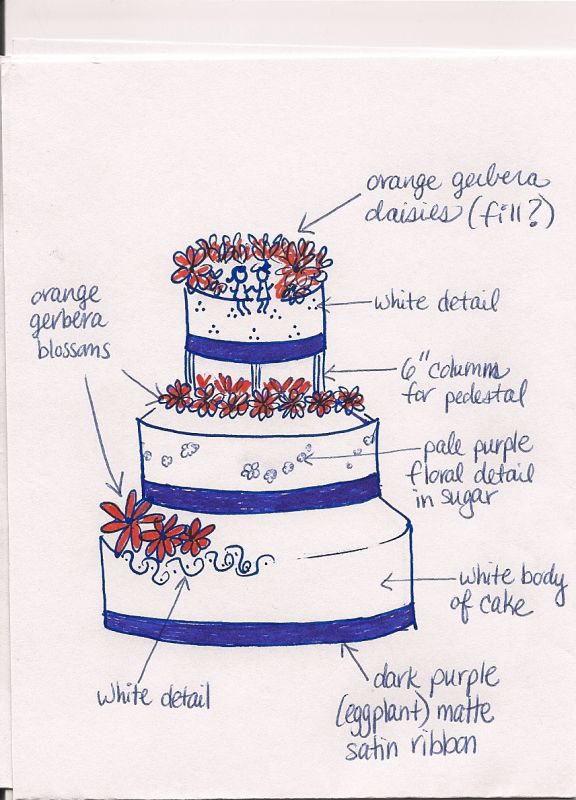 orange gerbera
daisies (fill?)
orange
gerbera
blossoms
white detail
6" columns
for pedestal
pale purple
floral detail
in sugar
white body
of cake
white detail
dark purple
(eggplant) matte
satin ribbon